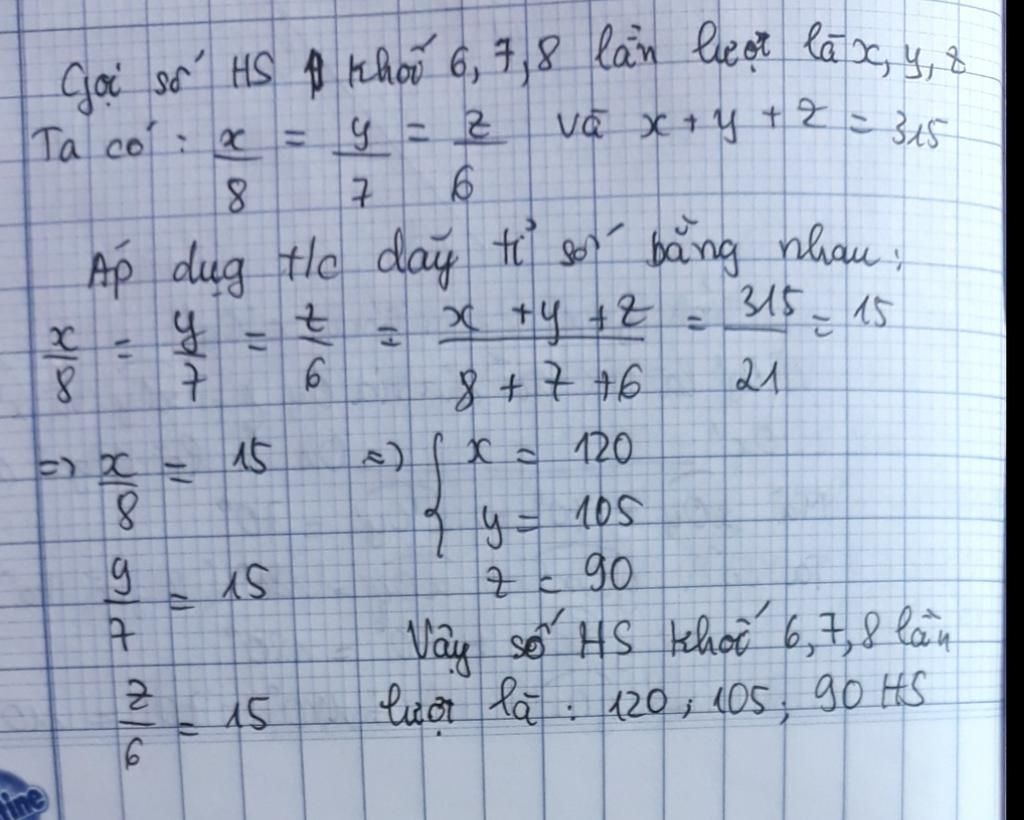 Gọi số HS khối 6, 7, 8 lần lượt là x, y, z
Ta có : x/8 = y/7 = z/6 và x + y + z = 315
Áp dụg t/c dãy tỉ số bằng nhau :
x/8 = y/7 = z/6 = (x + y + z)/(8 + 7 + 6) = 315/21 = 15
=> x/8 = 15 => { x = 120
y = 105
y/7 = 15 z = 90
Vậy số HS khối 6, 7, 8 lần
z/6 = 15 lượt là : 120 ; 105 ; 90 HS
tine